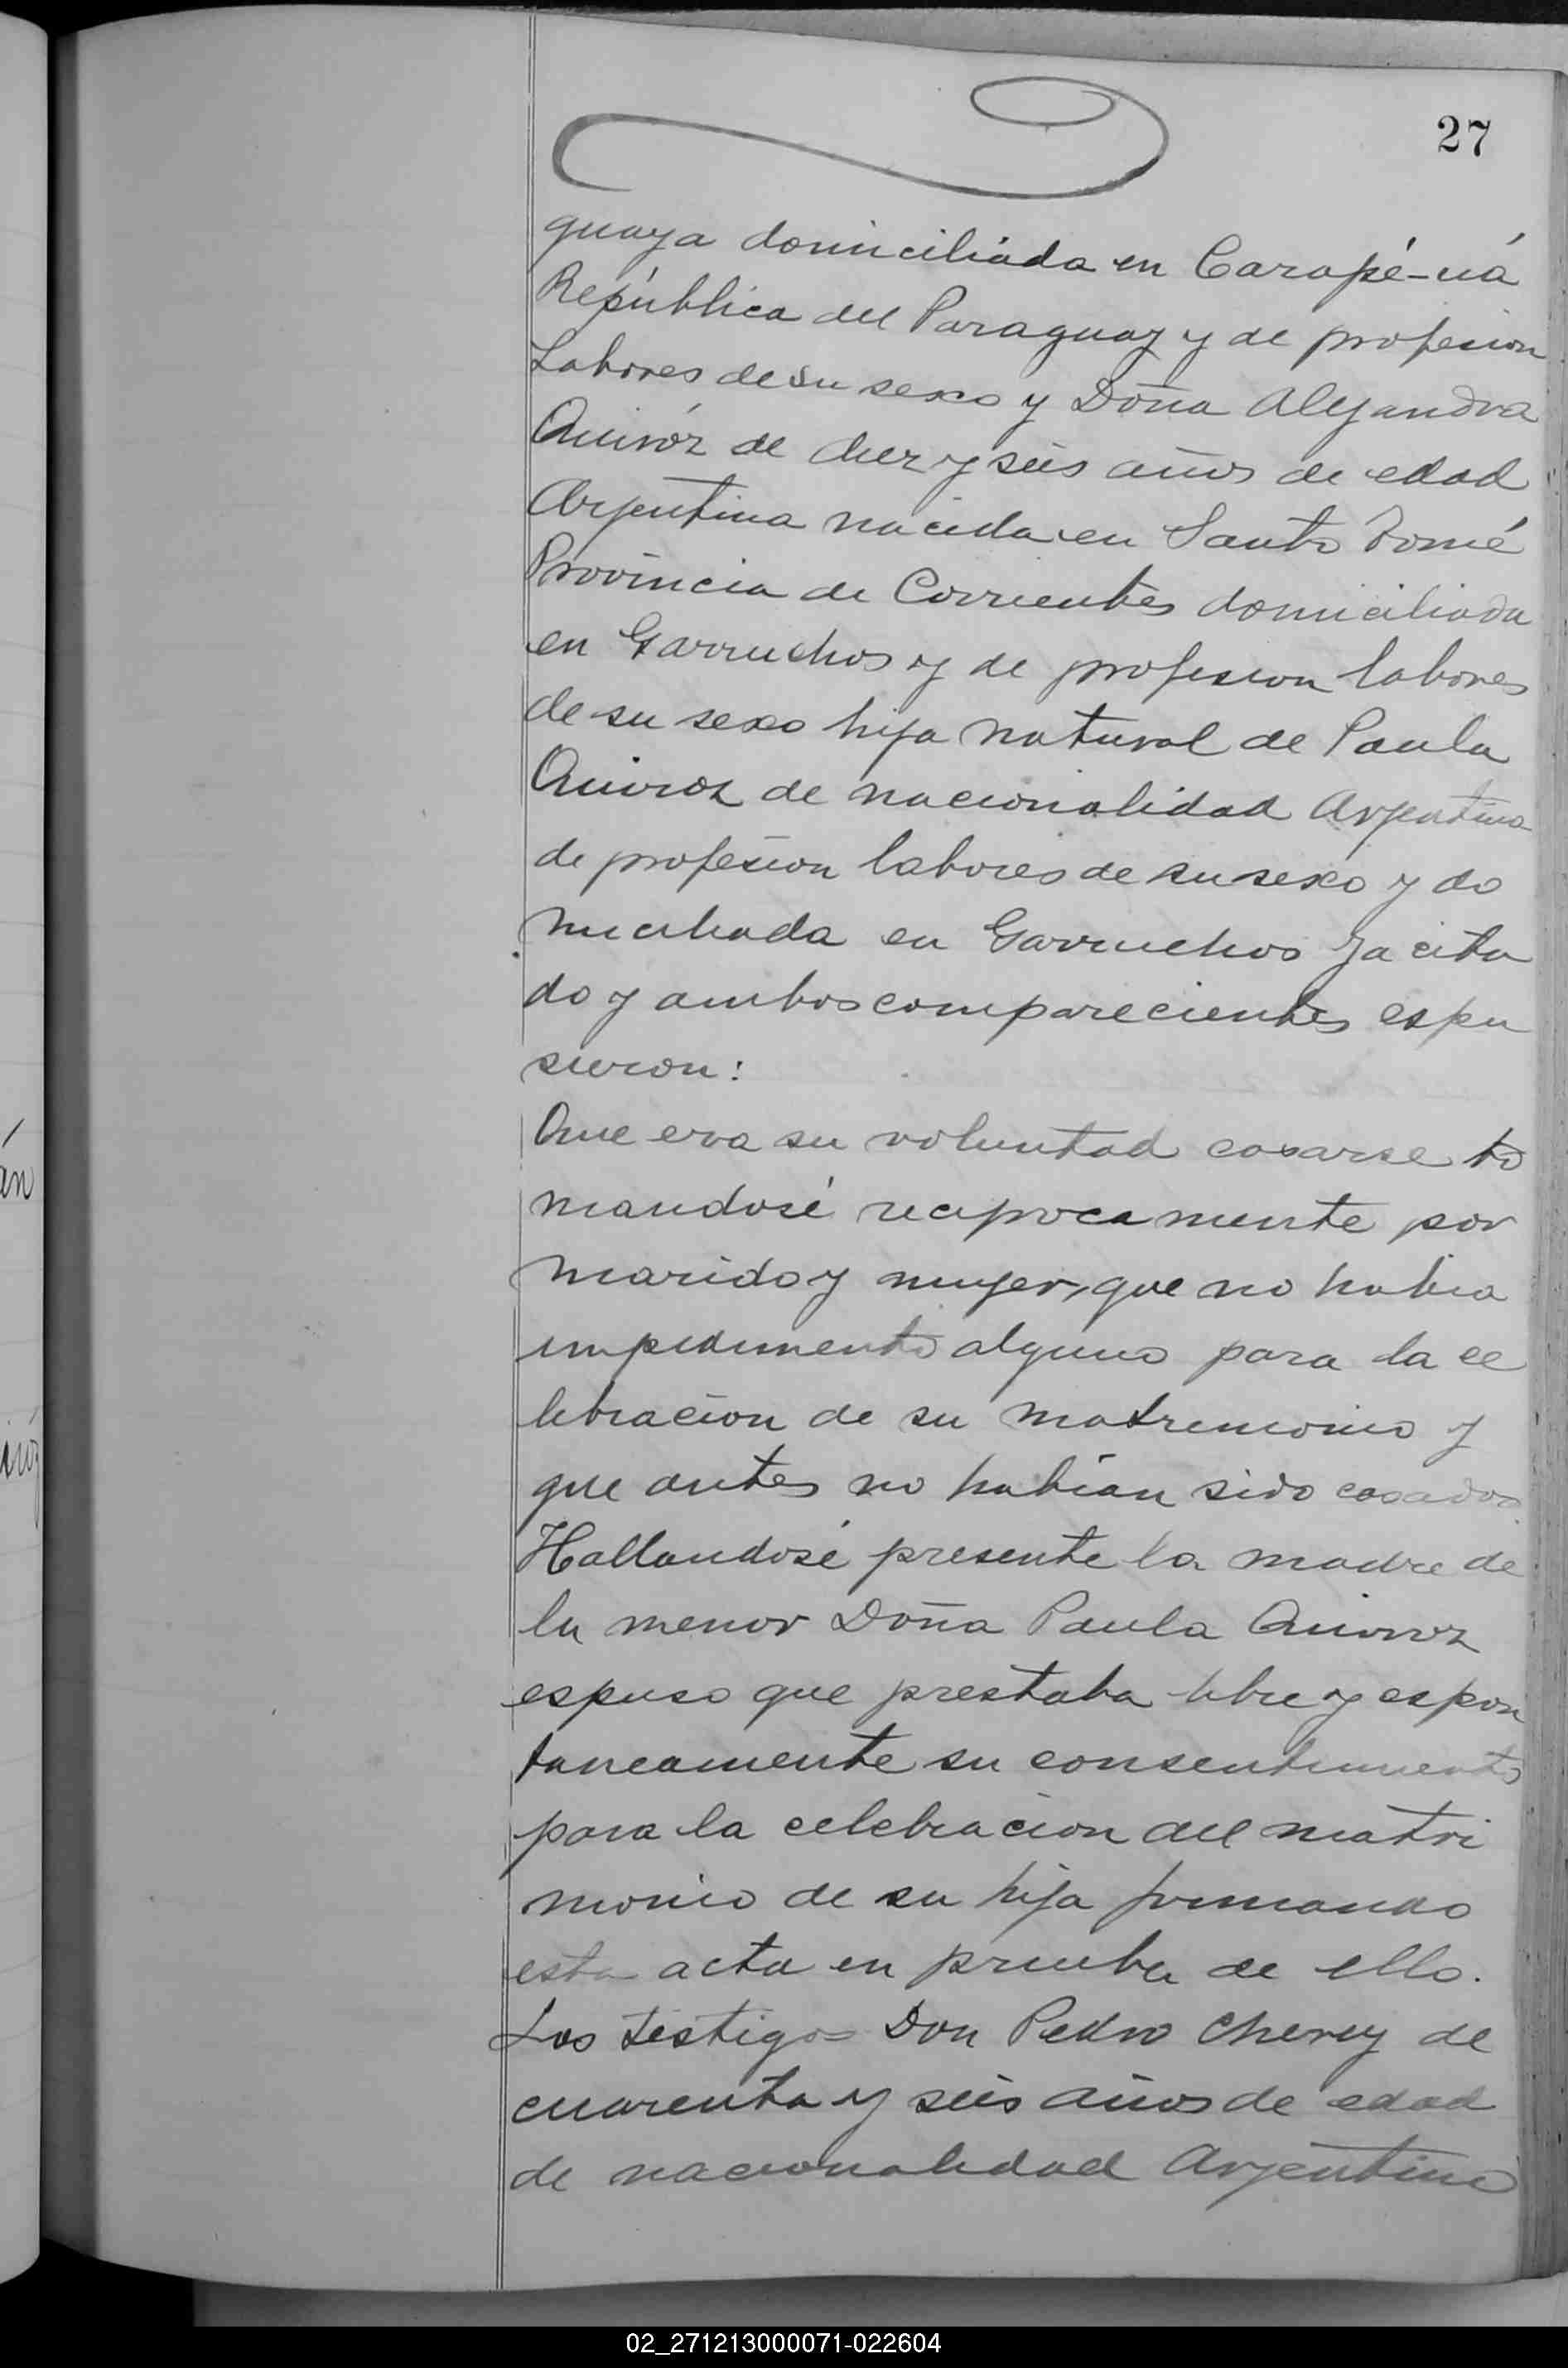 27
guaya domiciliáda en Carapé-uá
República del Paraguay y de profesion
Labores de su sexo y Doña Alejandra
Quiróz de diez y seis años de edad
Argentina nacida en Santo Tomé
Provincia de Corrientes domiciliada
en Garruchos y de profesion labores
de su sexo hija natural de Paula
Quiroz de nacionalidad Argentina
de profesion labores de su sexo y do
miciliada en Garruchos ya cita
do y ambos comparecientes espu
sieron:
Que era su voluntad casarse to
mandosé recipocamente por
marido y mujer, que no habia
impedimento alguno para la ce
lebracion de su matrimonio y
que antes no habian sido casados
Hallandosé presente la madre de
la menor Doña Paula Quiroz
espuso que prestaba libre y espon
taneamente su consentimiento
para la celebracion del matri
monio de su hija firmando
esta acta en prueba de ello.
Los testigos Don Pedro Cherey de
cuarenta y seis años de edad
de nacionalidad Argentino
án
iroz
02_271213000071-022604